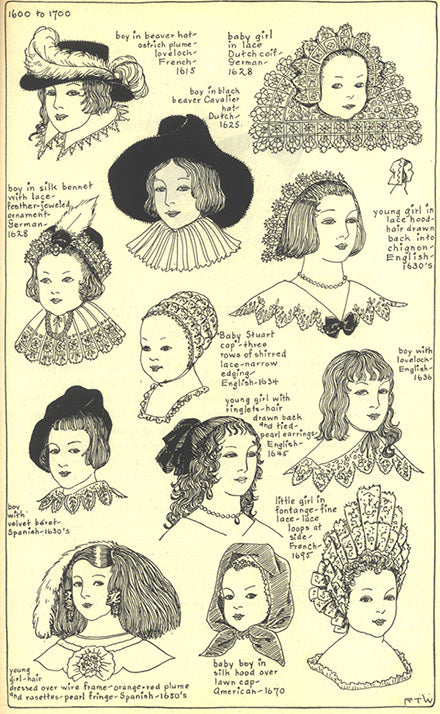 1600 to 1700
boy in beaver hat-
ostrich plume-
lovelock-
French-
1615
baby girl
in lace
Dutch coif-
German-
1628
boy in black
beaver Cavalier
hat-
Dutch-
1625
boy in silk bonnet
with lace-
feather-jeweled
ornament-
German-
1628
young girl in
lace hood-
hair drawn
back into
chignon-
English-
1630's
Baby Stuart
cap-three
rows of shirred
lace-narrow
edging-
English-1634
boy with
lovelock-
English-
1636
young girl with
ringlets-hair
drawn back
and tied-
pearl earrings
English-
1645
boy
with
velvet béret-
Spanish-1630's
little girl in
fontange-fine
lace-lace
loops at
side-
French-
1695
young
girl-hair
dressed over wire frame-orange-red plume
and rosettes-pearl fringe-Spanish-1650's
baby boy in
silk hood over
lawn cap-
American-1670
RTW